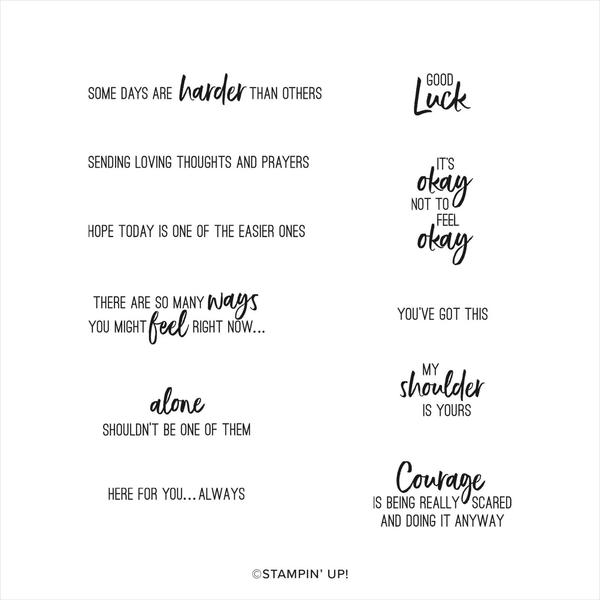 SOME DAYS ARE harder THAN OTHERS
SENDING LOVING THOUGHTS AND PRAYERS
HOPE TODAY IS ONE OF THE EASIER ONES
THERE ARE SO MANY ways
YOU MIGHT feel RIGHT NOW...
alone
SHOULDN'T BE ONE OF THEM
HERE FOR YOU...ALWAYS
GOOD
Luck
IT'S
okay
NOT TO
FEEL
okay
YOU'VE GOT THIS
MY
shoulder
IS YOURS
Courage
IS BEING REALLY SCARED
AND DOING IT ANYWAY
©STAMPIN' UP!